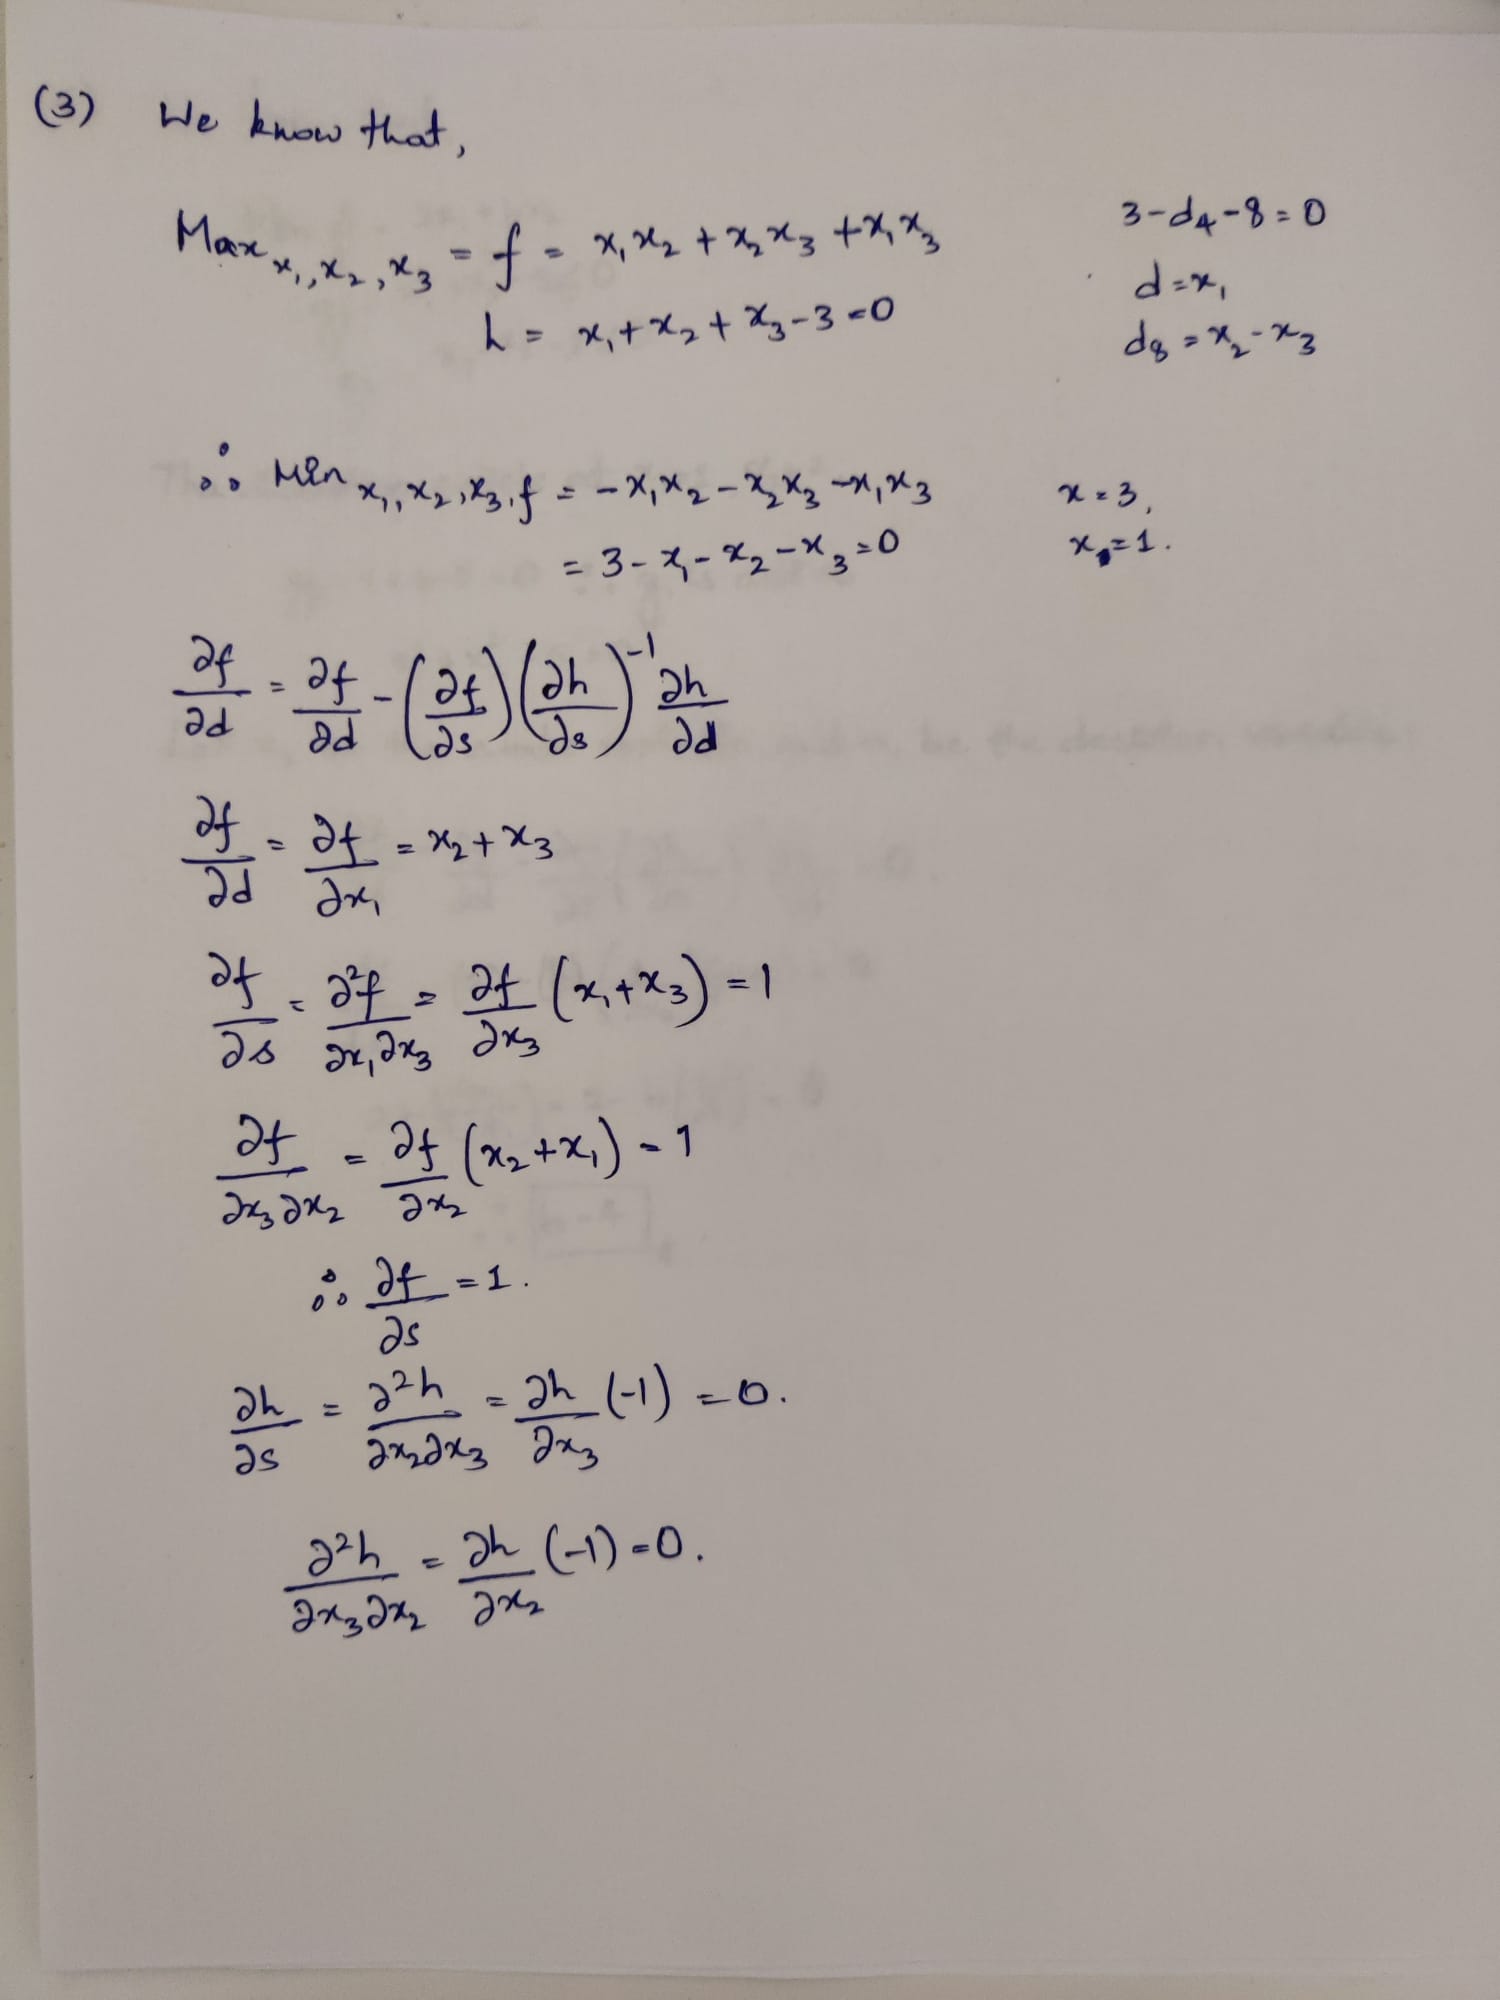 (3) We know that,
Max x₁,x₂,x₃ = f = x₁x₂ + x₂x₃ + x₁x₃
h = x₁ + x₂ + x₃ - 3 = 0
3 - d₄ - 8 = 0
d = x₁
d₈ = x₂ - x₃
∴ Min x₁,x₂,x₃,f = - x₁x₂ - x₂x₃ - x₁x₃
= 3 - x₁ - x₂ - x₃ = 0
x = 3,
x = 1.
∂f/∂d = ∂f/∂d - (∂f/∂s)(∂h/∂s)⁻¹ ∂h/∂d
∂f/∂d = ∂f/∂x₁ = x₂ + x₃
∂f/∂s = ∂²f/∂x₁∂x₃ = ∂f/∂x₃ (x₁ + x₃) = 1
∂f/∂x₃∂x₂ = ∂f/∂x₂ (x₂ + x₁) = 1
∴ ∂f/∂s = 1.
∂h/∂s = ∂²h/∂x₂∂x₃ = ∂h/∂x₃ (-1) = 0.
∂²h/∂x₃∂x₂ = ∂h/∂x₂ (-1) = 0.